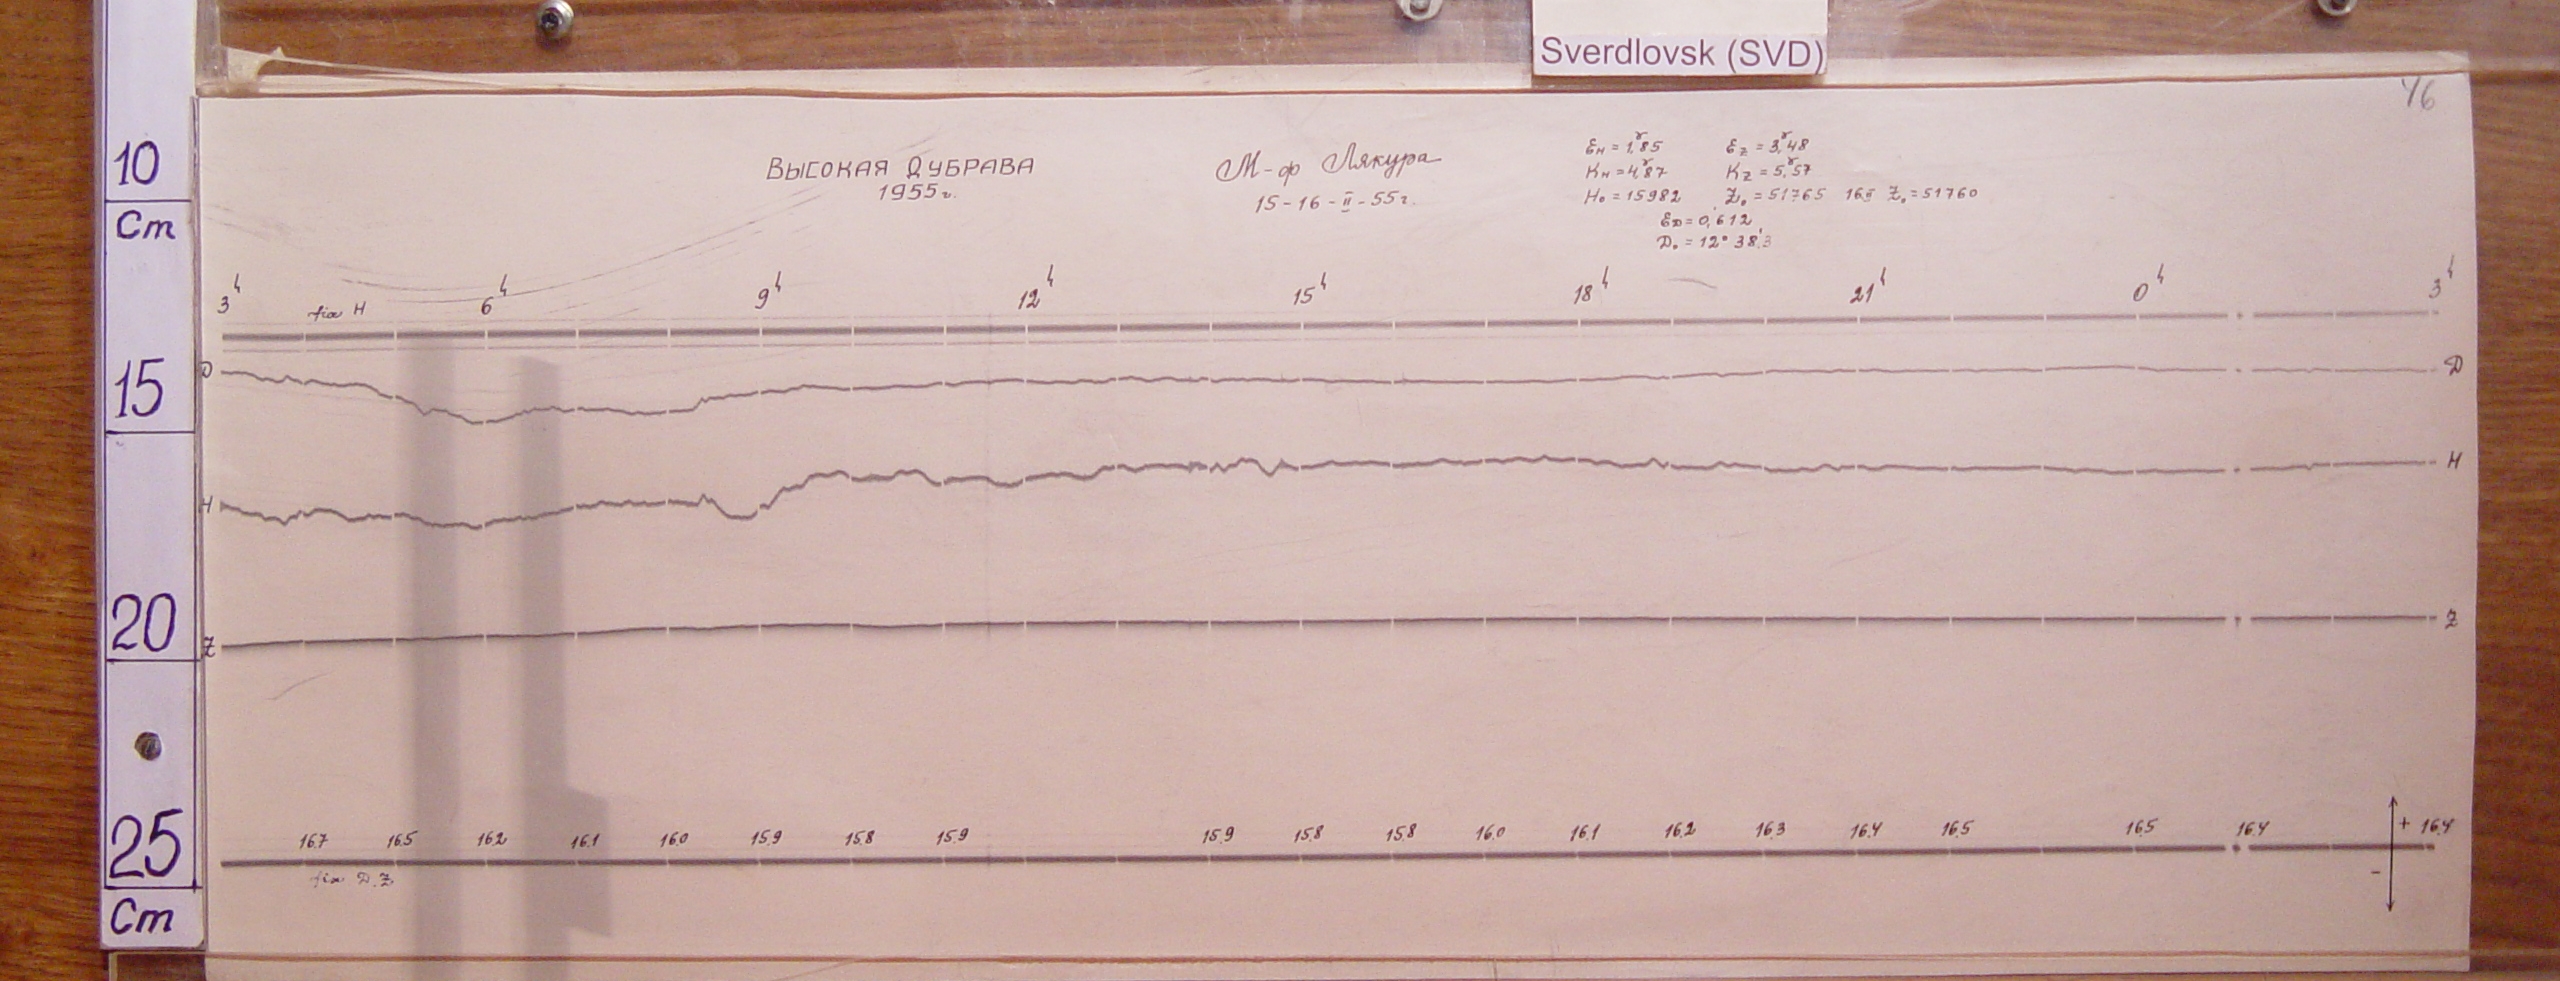 Sverdlovsk (SVD)
46
ВЫСОКАЯ ДУБРАВА
1955г.
М-ф Лякура
15-16-II-55г.
Ɛн = 1,ᵞ85 Ɛz = 3,ᵞ48
Kн = 4,ᵞ87 Kz = 5,ᵞ57
H₀ = 15982 Z₀ = 51765 16II Z₀ = 51760
ƐD = 0,'612
D₀ = 12° 38,'3
3ʰ 6ʰ 9ʰ 12ʰ 15ʰ 18ʰ 21ʰ 0ʰ 3ʰ
fix H
D D
H H
Z Z
16.7 16.5 16.2 16.1 16.0 15.9 15.8 15.9 15.9 15.8 15.8 16.0 16.1 16.2 16.3 16.4 16.5 16.5 16.4 + 16.4
fix D.Z -
10
Cm
15
20
25
Cm